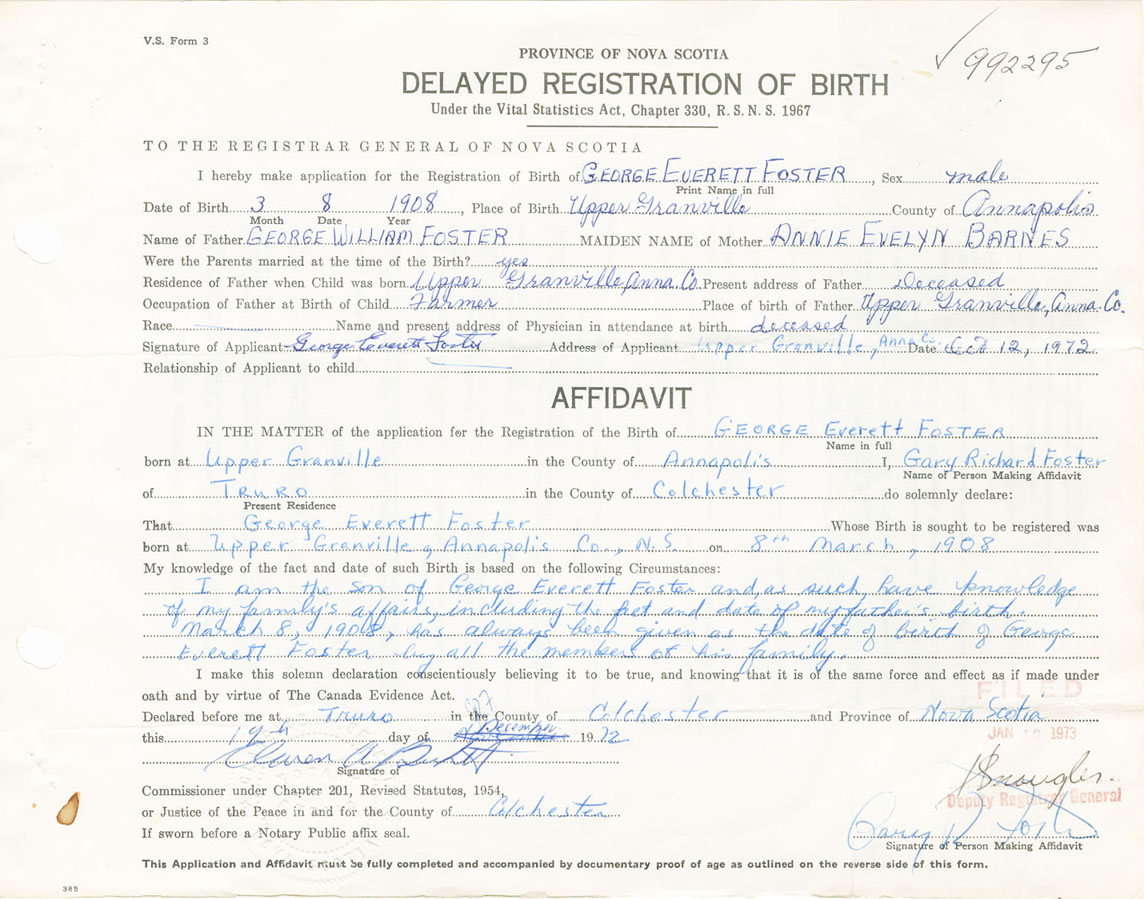 V.S. Form 3
PROVINCE OF NOVA SCOTIA
992295
DELAYED REGISTRATION OF BIRTH
Under the Vital Statistics Act, Chapter 330, R.S.N.S. 1967
TO THE REGISTRAR GENERAL OF NOVA SCOTIA
I hereby make application for the Registration of Birth of GEORGE EVERETT FOSTER, Sex male
Print Name in full
Date of Birth 3 8 1908, Place of Birth Upper Granville County of Annapolis
Month Date Year
Name of Father GEORGE WILLIAM FOSTER MAIDEN NAME of Mother ANNIE EVELYN BARNES
Were the Parents married at the time of the Birth? yes
Residence of Father when Child was born Upper Granville, Anna. Co. Present address of Father Deceased
Occupation of Father at Birth of Child Farmer Place of birth of Father Upper Granville, Anna. Co.
Race Name and present address of Physician in attendance at birth deceased
Signature of Applicant George Everett Foster Address of Applicant Upper Granville, Anna Co. Date Oct 12, 1972
Relationship of Applicant to child
AFFIDAVIT
IN THE MATTER of the application for the Registration of the Birth of GEORGE Everett FOSTER
Name in full
born at Upper Granville in the County of Annapolis I, Gary Richard Foster
Name of Person Making Affidavit
of Truro in the County of Colchester do solemnly declare:
Present Residence
That George Everett Foster Whose Birth is sought to be registered was
born at Upper Granville, Annapolis Co., N.S. on 8th March, 1908
My knowledge of the fact and date of such Birth is based on the following Circumstances:
I am the son of George Everett Foster and, as such, have knowledge
of my family's affairs, including the fact and date of my father's birth.
March 8, 1908, has always been given as the date of birth of George
Everett Foster by all the members of his family.
I make this solemn declaration conscientiously believing it to be true, and knowing that it is of the same force and effect as if made under
oath and by virtue of The Canada Evidence Act.
FILED
Declared before me at Truro in the County of Colchester and Province of Nova Scotia
this day of December 1972
JAN 1973
Signature of
Commissioner under Chapter 201, Revised Statutes, 1954,
Deputy Registrar General
or Justice of the Peace in and for the County of Colchester
Gary R Foster
If sworn before a Notary Public affix seal.
Signature of Person Making Affidavit
This Application and Affidavit must be fully completed and accompanied by documentary proof of age as outlined on the reverse side of this form.
385